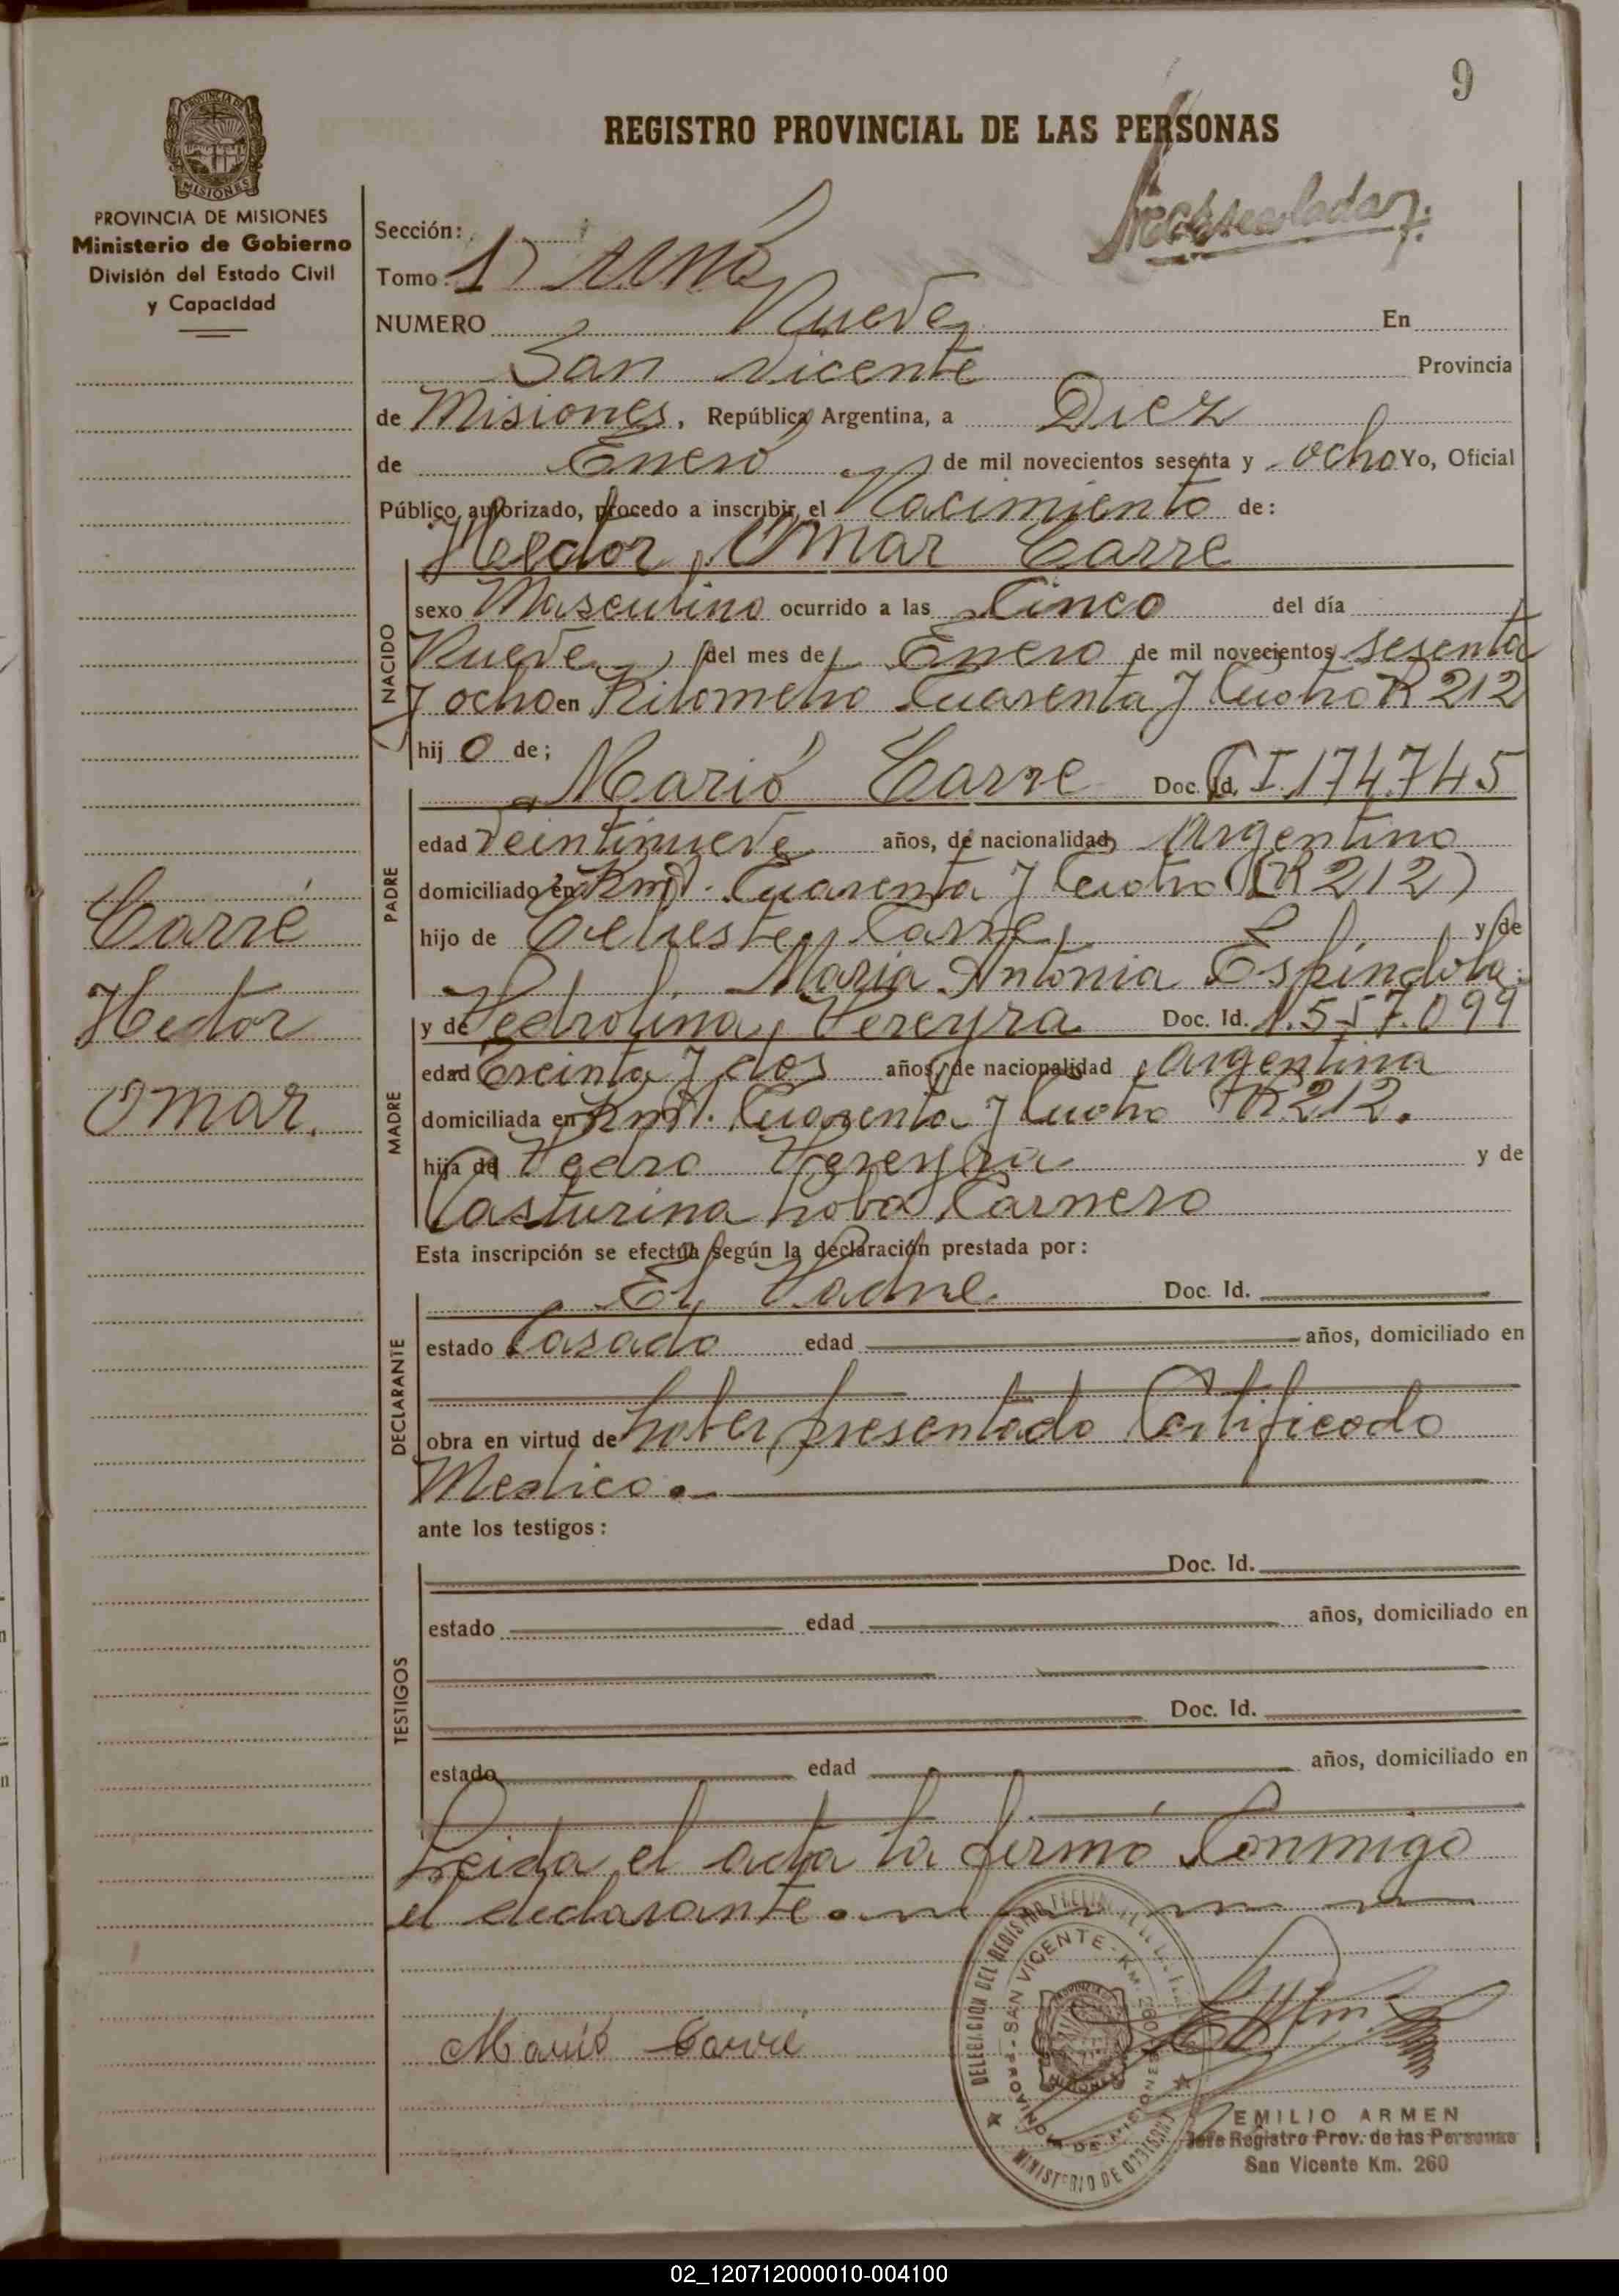 9
REGISTRO PROVINCIAL DE LAS PERSONAS
PROVINCIA DE MISIONES
MISIONES
PROVINCIA DE MISIONES
Ministerio de Gobierno
División del Estado Civil
y Capacidad
Carré
Hector
Omar.
Sección:
Tomo: 1) uno
NUMERO Nueve En
San Vicente Provincia
de Misiones, República Argentina, a Diez
de Enero de mil novecientos sesenta y ocho Yo, Oficial
Público autorizado, procedo a inscribir el Nacimiento de:
Hector Omar Carre
NACIDO
sexo Masculino ocurrido a las Cinco del día
Nueve del mes de Enero de mil novecientos sesenta
y ocho en Kilometro Cuarenta y Cuatro R 212
hij o de;
PADRE
Mario Carre Doc. Id. C.I. 174.745
edad Veintinueve años, de nacionalidad Argentino
domiciliado en Km. Cuarenta y Cuatro (R 212)
hijo de Carre y de
Maria Antonia Espindola.
MADRE
y de Pedrolina Pereyra Doc. Id. 1.557.099
edad Treinta y dos años, de nacionalidad Argentina
domiciliada en Km. Cuarenta y Cuatro R 212.
hija de Pedro Pereyra y de
Casturina Carnero
Esta inscripción se efectúa según la declaración prestada por:
DECLARANTE
El Padre Doc. Id.
estado Casado edad años, domiciliado en
obra en virtud de haber presentado Certificado
Medico.
ante los testigos:
TESTIGOS
Doc. Id.
estado edad años, domiciliado en
Doc. Id.
estado edad años, domiciliado en
Leida el acta la firmó Conmigo
el declarante.
Mario Carré
DELEGACION DEL REGISTRO
SAN VICENTE - KM. 260
PROVINCIA DE MISIONES
MINISTERIO DE GOBIERNO
EMILIO ARMEN
Jefe Registro Prov. de las Personas
San Vicente Km. 260
02_120712000010-004100